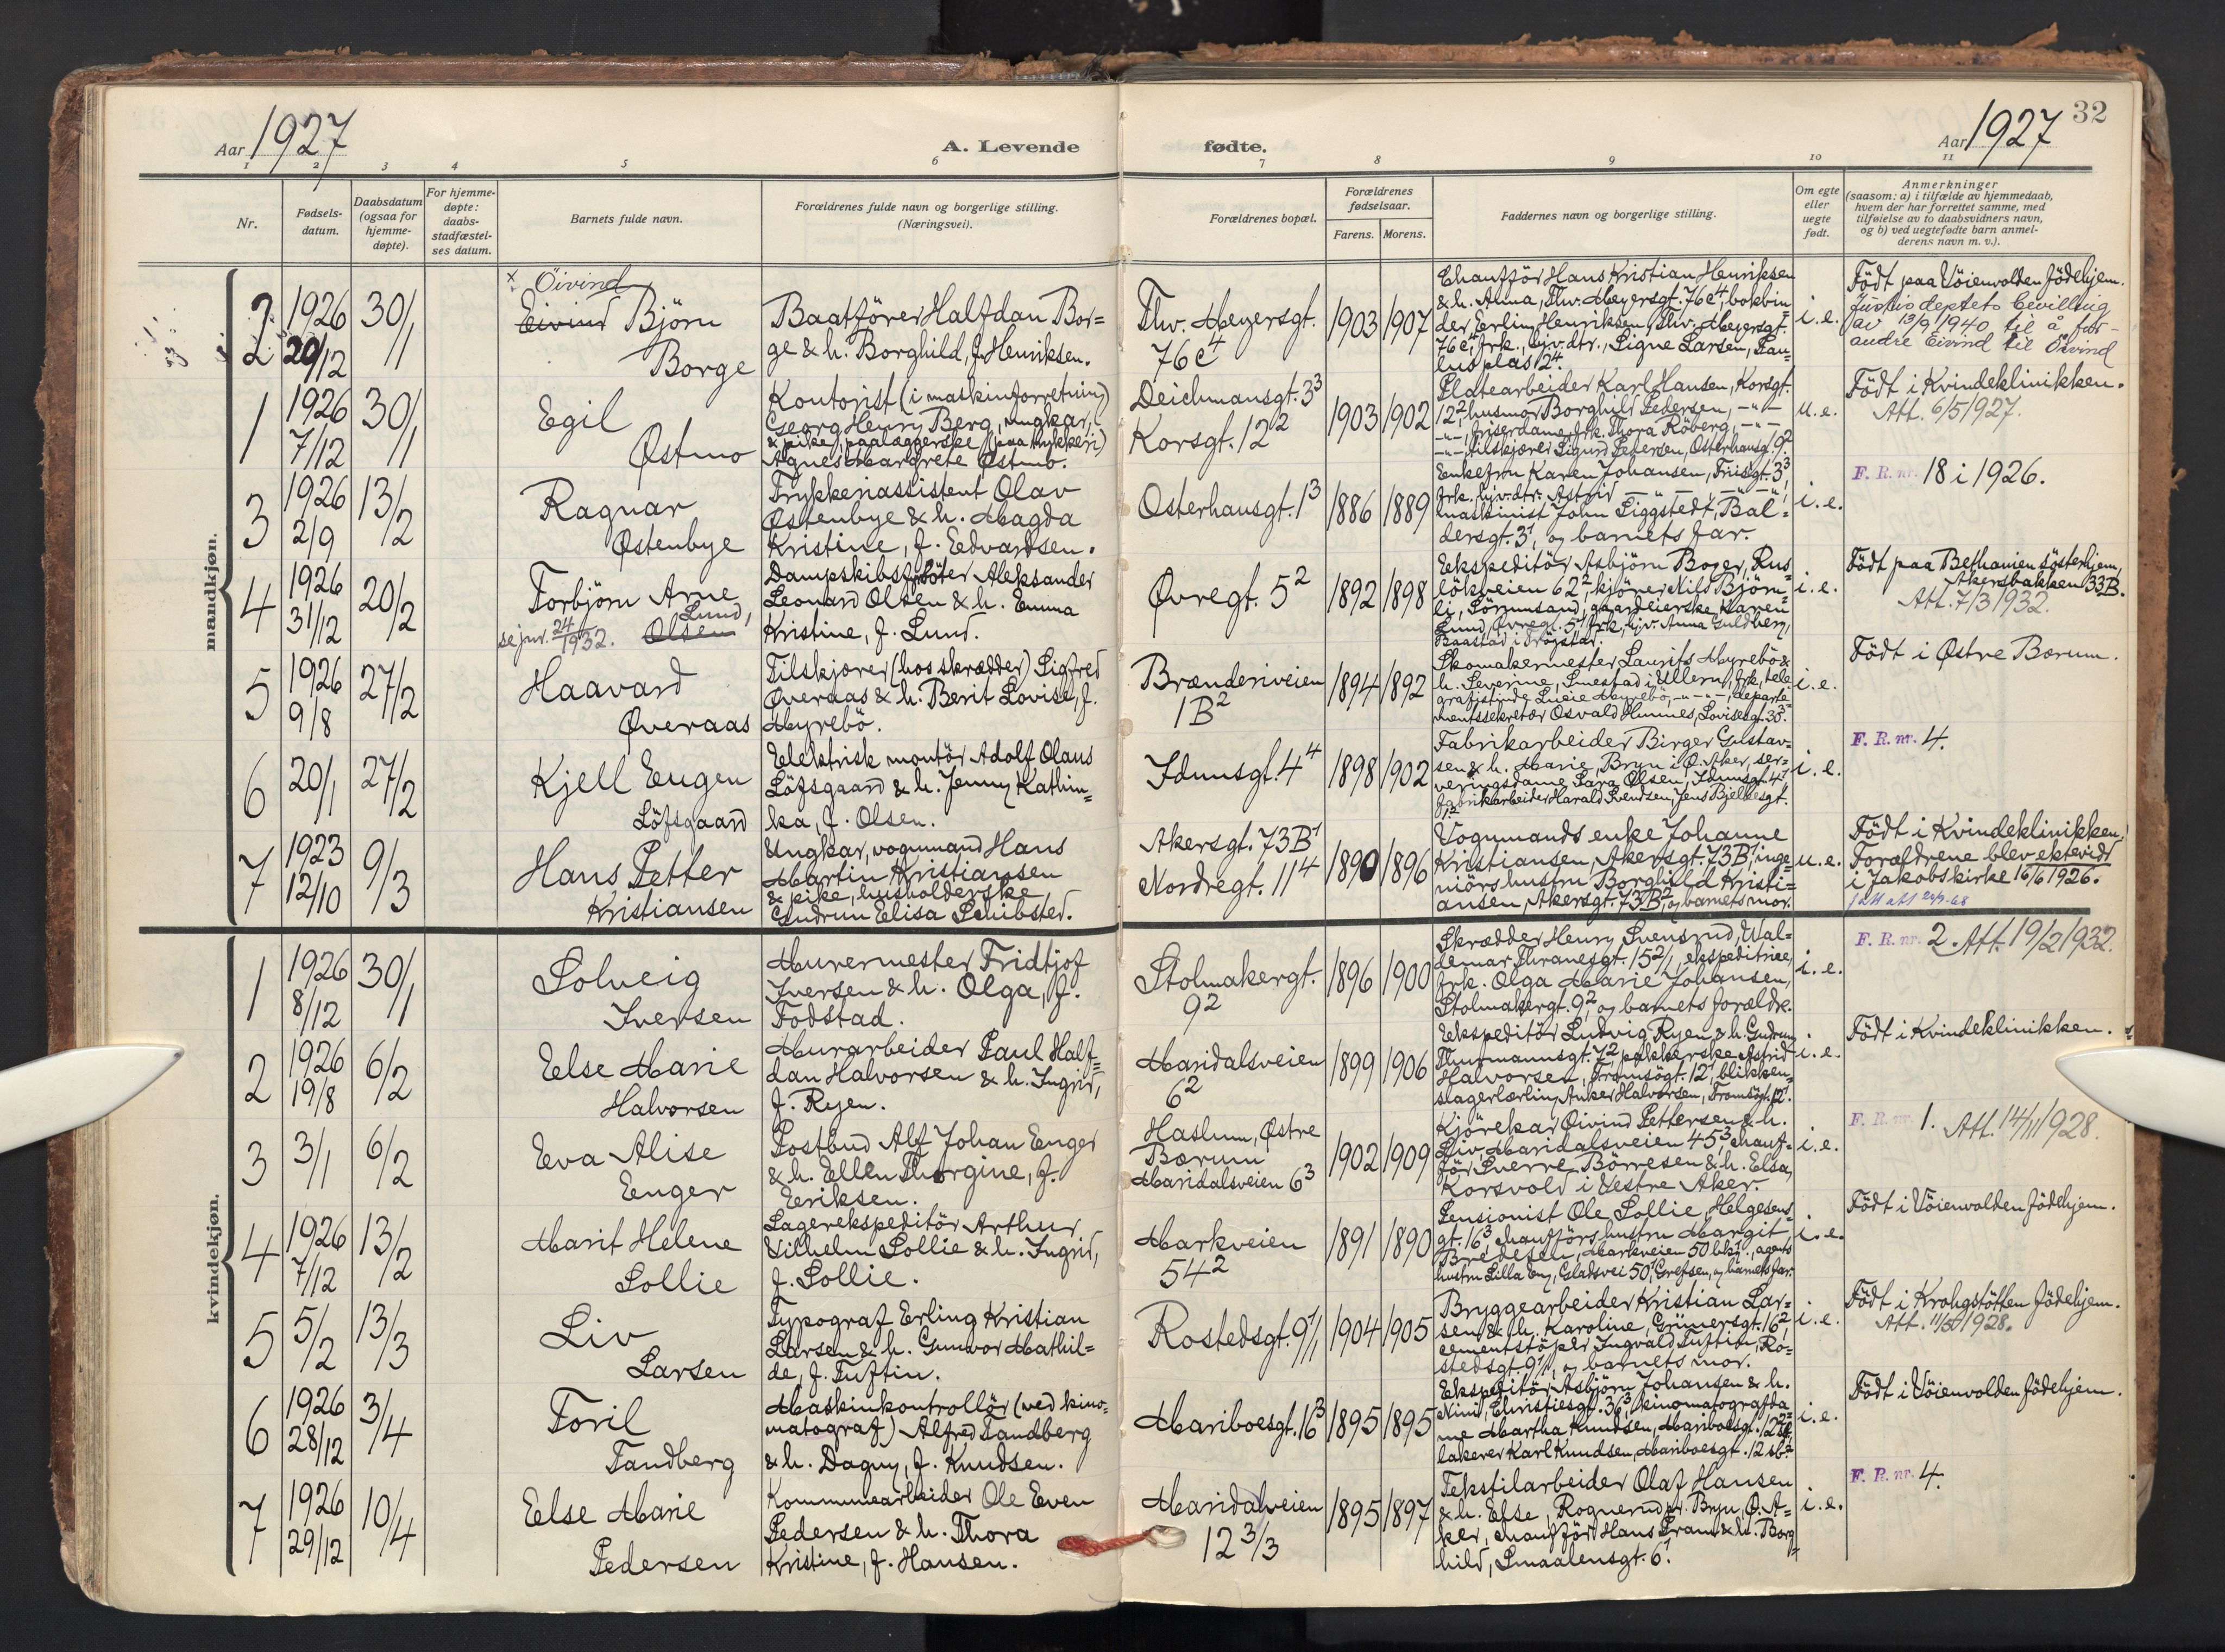 Aar 1927
A. Levende fødte.
Aar 1927
32
1 2 3 4 5 6 7 8 9 10 11
Nr.
Fødsels-
datum.
Daabsdatum
(ogsaa for
hjemme-
døpte).
For hjemme-
døpte:
daabs-
stadfæstel-
ses datum.
Barnets fulde navn.
Forældrenes fulde navn og borgerlige stilling.
(Næringsvei).
Forældrenes bopæl.
Forældrenes
fødselsaar.
Farens. Morens.
Faddernes navn og borgerlige stilling.
Om egte
eller
uegte
født.
Anmerkninger
(saasom: a) i tilfælde av hjemmedaab,
hvem der har forrettet samme, med
tilføielse av to daabsvidners navn,
og b) ved uegtefødte barn anmel-
derens navn m. v.).
mandkjøn.
2
1926
20/12
30/1
x Öivind
Eivind Björn
Borge
Baatförer Halfdan Bor=
ge & h. Borghild, f. Henriksen.
Thv. Meyersgt.
76c4
1903 1907
Chaufför Hans Kristian Henriksen
& h. Anna, Thv. Meyersgt. 76c4, bokbin=
der Erling Henriksen, Thv. Meyersgt.
76c4, frk., hjv. dtr., Signe Larsen, Pau=
lus plas 24.
i. e.
Født paa Vöienvolden Födehjem.
Justisdeptets bevilling
av 13/9 1940 til å for-
andre Eivind til Öivind
1
1926
7/12
30/1
Egil
Østmo
Kontorist (i maskinforretning)
Georg Henry Berg, ungkar,
& pike, paalæggerske (paa trykkeri)
Agnes Margrete Østmo.
Deichmansgt. 3 3
Korsgt. 12 2
1903 1902
Platearbeider Karl Hansen, Korsgt.
12 2, husmor Borghild Pedersen, -"-
-"-, friserdame, frk. Thora Röberg, -"-
-"-, tilskjærer Sigurd Petersen, Osterhausgt. 9 2.
u. e.
Født i Kvindeklinikken.
Att. 6/5 1927.
3
1926
2/9
13/2
Ragnar
Østenbye
Trykkeriassistent Olav
Østenbye & h. Magda
Kristine, f. Edvardsen.
Osterhausgt. 1 3
1886 1889
Enkefru Karen Johansen, Friisgt. 3 3,
frk. hjv. dtr. Astrid -"- -"- -"-,
maskinist John Siggstedt, Bal=
dersgt. 3 1, og barnets far.
i. e.
F. R. nr. 18 i 1926.
4
1926
31/12
20/2
Torbjörn Arne
Lund,
se jnr. 24/1932. Olsen
Dampskibsfyrböter Aleksander
Leonard Olsen & h. Emma
Kristine, f. Lund.
Øvregt. 5 2
1892 1898
Ekspeditör Asbjörn Boger, Rus=
lökveien 62 2, kjörer Nils Björn=
li, Sörumsand, gaardeierske Karen
Lund, Øvregt. 5 1, frk., hjv. Anna Guldberg,
Baastad i Trögstad.
i. e.
Født paa Bethanien Søsterhjem,
Akersbakken 33B.
Att. 7/3 1932.
5
1926
9/8
27/2
Haavard
Øveraas
Tilskjærer (hos skrædder) Sigfred
Øveraas & h. Berit Lovise, f.
Myrebö.
Brænderiveien
1B2
1894 1892
Skomakermester Laurits Myrebö &
h. Severine, Smestad i Ullern, frk., tele
grafistinde Lucie Myrebö, -"- -"-, departe
mentssekretær Osvald Hummes, Lovisesgt. 3 3.
i. e.
Født i Østre Bærum.
6
20/1
27/2
Kjell Eugen
Löfsgaard
Elektrisk montör Adolf Olaus
Löfsgaard & h. Jenny Kathin=
ka, f. Olsen.
Idunsgt. 4 4
1898 1902
Fabrikarbeider Birger Gustav=
sen & h. Marie, Bryn i Ö. Aker, ser=
veringsdame Sara Olsen, Idunsgt. 4 1,
fabrikarbeider Harald Svendsen, Jens Bjelkesgt.
i. e.
F. R. nr. 4.
7
1923
12/10
9/3
Hans Petter
Kristiansen
Ungkar, vognmand Hans
Martin Kristiansen
& pike, husholderske
Gudrun Elisa Schibsted.
Akersgt. 73B1
Nordregt. 11 4
1890 1896
Vognmands enke Johanne
Kristiansen, Akersgt. 73B1, inge=
niörs hustru Borghild Kristi=
ansen, Akersgt. 73B2, og barnets mor.
u. e.
Født i Kvindeklinikken.
Forældrene blev ektevidd
i Jakobs kirke 16/6 1926.
kvindekjøn.
1
1926
8/12
30/1
Solveig
Iversen
Murermester Fridtjof
Iversen & h. Olga, f.
Fodstad.
Stolmakergt.
9 2
1896 1900
Skrædder Henry Svensrud, Wal=
demar Thranesgt. 15 2/1, ekspeditrice,
frk. Olga Marie Johansen,
Stolmakergt. 9 2, og barnets forældre.
i. e.
F. R. nr. 2. Att. 19/2 1932.
2
1926
19/8
6/2
Else Marie
Halvorsen
Murarbeider Paul Half=
dan Halvorsen & h. Ingrid,
f. Ryen.
Maridalsveien
6 2
1899 1906
Ekspeditör Ludvig Ryen & h. Gudrun,
Thurmannsgt. 7 2, pakkerske Astrid
Halvorsen, Tromsögt. 12 1, blikken=
slagerlærling Anker Halvorsen, Tromsögt. 12 1.
i. e.
Født i Kvindeklinikken.
3
3/1
6/2
Eva Alise
Enger
Postbud Alf Johan Enger
& h. Ellen Thorgine, f.
Eriksen.
Haslum, Østre
Bærum
Maridalsveien 6 3
1902 1909
Kjörekar Øivind Pettersen & h.
Liv, Maridalsveien 45 3, chauf=
för Sverre Börresen & h. Elsa,
Korsvold i Vestre Aker.
i. e.
F. R. nr. 1. Att. 14/11 1928.
4
1926
7/12
13/2
Marit Helene
Sollie
Lagerekspeditör Arthur
Vilhelm Sollie & h. Ingrid,
f. Sollie.
Markveien
54 2
1891 1890
Pensionist Ole Sollie, Helgesens=
gt. 16 3, chaufförs hustru Margit
Bredesen, Markveien 50, agents
hustru Lilla Eng, Gladsvei 50 1, Grefsen, og barnets far.
i. e.
Født i Vöienvolden Födehjem.
5
5/2
13/3
Liv
Larsen
Typograf Erling Kristian
Larsen & h. Gunvor Mathil=
de, f. Tuftin.
Rostedsgt. 9 1/1
1904 1905
Bryggearbeider Kristian Lar=
sen & h. Karoline, Grünersgt. 16 2,
cementstöper Ingvald Tuftin, Ro=
stedsgt. 9 1/1, og barnets mor.
i. e.
Født i Krohgstötten Födehjem.
Att. 1928.
6
1926
28/12
3/4
Toril
Tandberg
Maskinkontrollör (ved kino=
matograf) Alfred Tandberg
& h. Dagny, f. Knudsen.
Mariboesgt. 16 3
1895 1895
Ekspeditör Asbjörn Johansen & h.
Nini, Christiesgt. 36 3, kinomatografda
me Martha Knudsen, Mariboesgt. 12
lakerer Karl Knudsen, Mariboesgt. 12
i. e.
Født i Vöienvolden Födehjem.
7
1926
29/12
10/4
Else Marie
Pedersen
Kommunearbeider Ole Even
Pedersen & h. Thora
Kristine, f. Hansen.
Maridalveien
12 3/3
1895 1897
Tekstilarbeider Olaf Hansen
& h. Else, Rognerud pr. Bryn, Ö. A=
ker, chaufför Hans Pram & h. Borg
hild, Smaalensgt. 6 1.
i. e.
F. R. nr. 4.